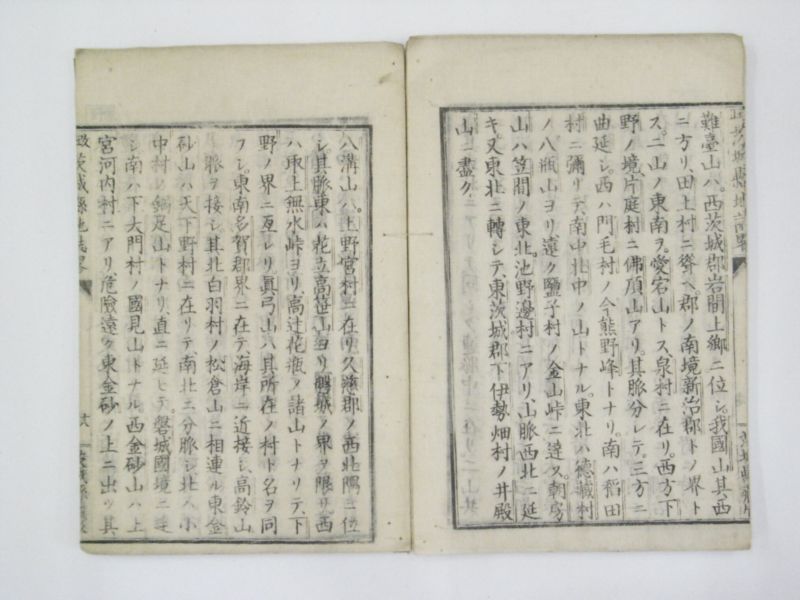 難臺山ハ。西茨城郡岩間上鄕ニ位シ。我國山其西
ニ方リ。田上村ニ聳ヘ。郡ノ南境新治郡トノ界ト
ス。二山ノ東南ヲ。愛宕山トス。泉村ニ在リ。西方下
野ノ境片庭村ニ佛頂山アリ。其脈分レテ。三方ニ
曲延シ。西ハ門毛村ノ今熊野峰トナリ。南ハ稻田
村ニ彌リテ。南中北中ノ山トナル。東北ハ德藏村
ノ八瓶山ヨリ遠ク鹽子村ノ金山峠ニ達ス。朝房
山ハ笠間ノ東北。池野邊村ニアリ。山脈西北ニ延
キ。又東北ニ轉シテ。東茨城郡下伊勢畑村ノ井殿
山ニ盡ク
八溝山ハ。上野宮村ニ在リ。久慈郡ノ西北隅ニ位
シ。其脈東ハ花立高笹山ヨリ磐城ノ界ヲ限リ。西
ハ取上無水峠ヨリ。高辻花瓶ノ諸山トナリテ。下
野ノ界ニ亙レリ。眞弓山ハ其所在ノ村ト名ヲ同
フシ。東南多賀郡界ニ在テ海岸ニ近接シ。高鈴山
ト脈ヲ接シ。其北白羽村ノ松倉山ニ相連ル。東金
砂山ハ天下野村ニ在リテ南北ニ分脈シ。北ハ小
中村ノ鍋足山トナリ。直ニ延ヒテ。磐城國境ニ連
シ。南ハ下大門村ノ國見山トナル。西金砂山ハ上
宮河内村ニアリ。危險遠ク東金砂ノ上ニ出ツ。其
改茨城縣地誌畧
十六
茨城縣